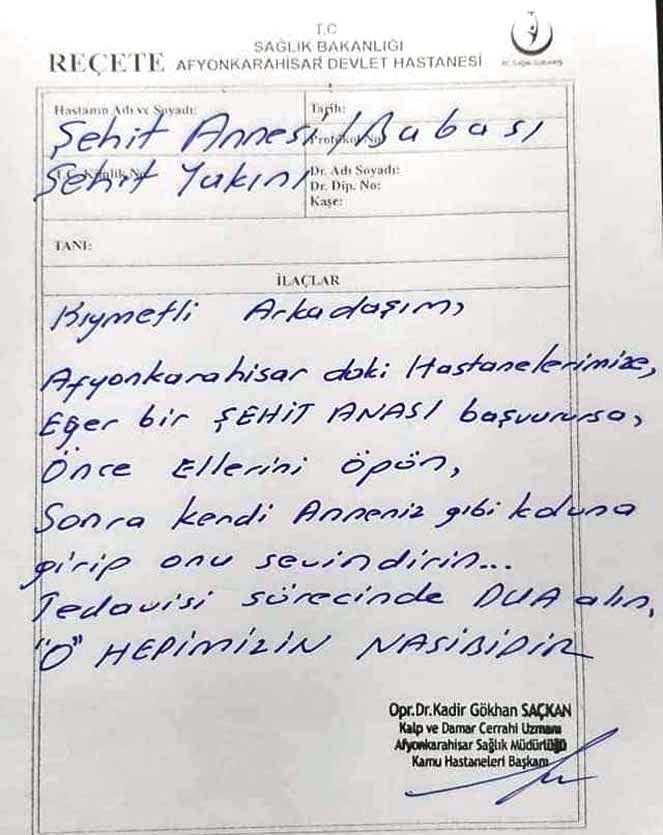 T.C
SAĞLIK BAKANLIĞI
REÇETE AFYONKARAHİSAR DEVLET HASTANESİ
Hastanın Adı ve Soyadı:
Tarih:
Şehit Annesi/Babası
Protokol No:
T.C. Kimlik No:
Şehit Yakını
Dr. Adı Soyadı:
Dr. Dip. No:
Kaşe:
TANI:
İLAÇLAR
Kıymetli Arkadaşım,
Afyonkarahisar daki Hastanelerimize,
Eğer bir ŞEHİT ANASI başvurursa,
Önce Ellerini öpün,
Sonra kendi Anneniz gibi koluna
girip onu sevindirin...
Tedavisi sürecinde DUA alın,
"O" HEPİMİZİN NASİBİDİR
Opr.Dr.Kadir Gökhan SAÇKAN
Kalp ve Damar Cerrahi Uzmanı
Afyonkarahisar Sağlık Müdürlüğü
Kamu Hastaneleri Başkanı